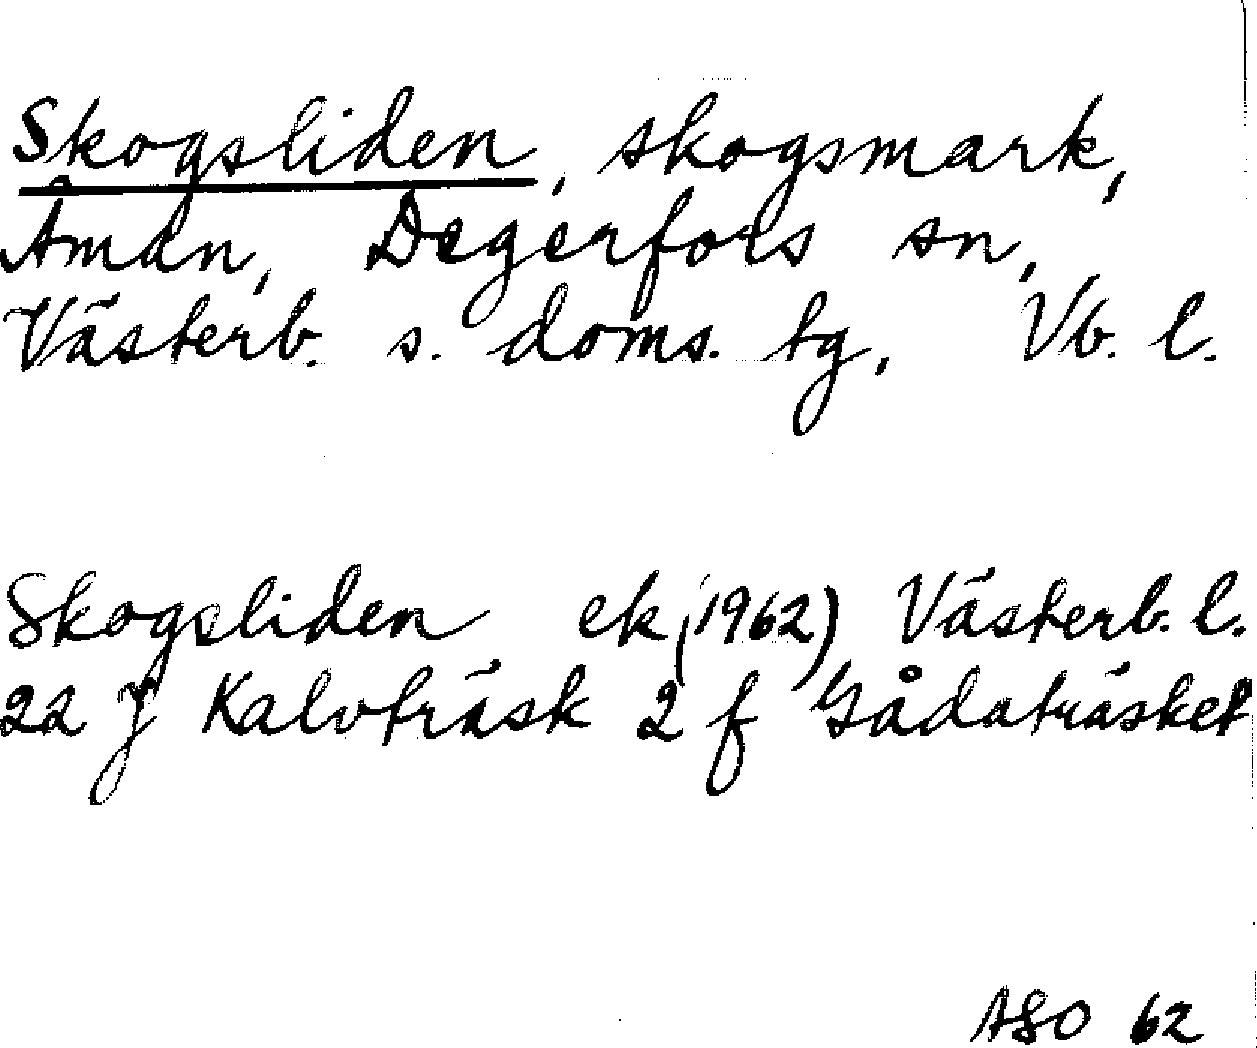 Skogsliden, skogsmark,
Åman, Degerfors sn,
Västerb. s. doms. tg, Vb. l.
Skogsliden ek (1962) Västerb. l.
22 J Kalvträsk 2 f Gådaträsket
ASO 62